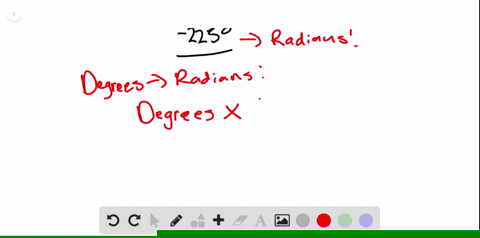 -225° → Radians!
Degrees → Radians:
Degrees X